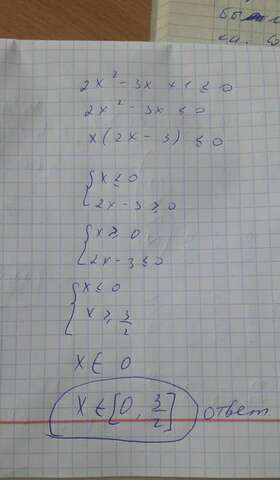 2x² - 3x + 1 ≤ 0
2x² - 3x ≤ 0
x(2x - 3) ≤ 0
{ x ≤ 0
2x - 3 ≥ 0
{ x ≥ 0
2x - 3 ≤ 0
{ x ≤ 0
x ≥ 3/2
x ∈ 0
x ∈ [0, 3/2] ответ